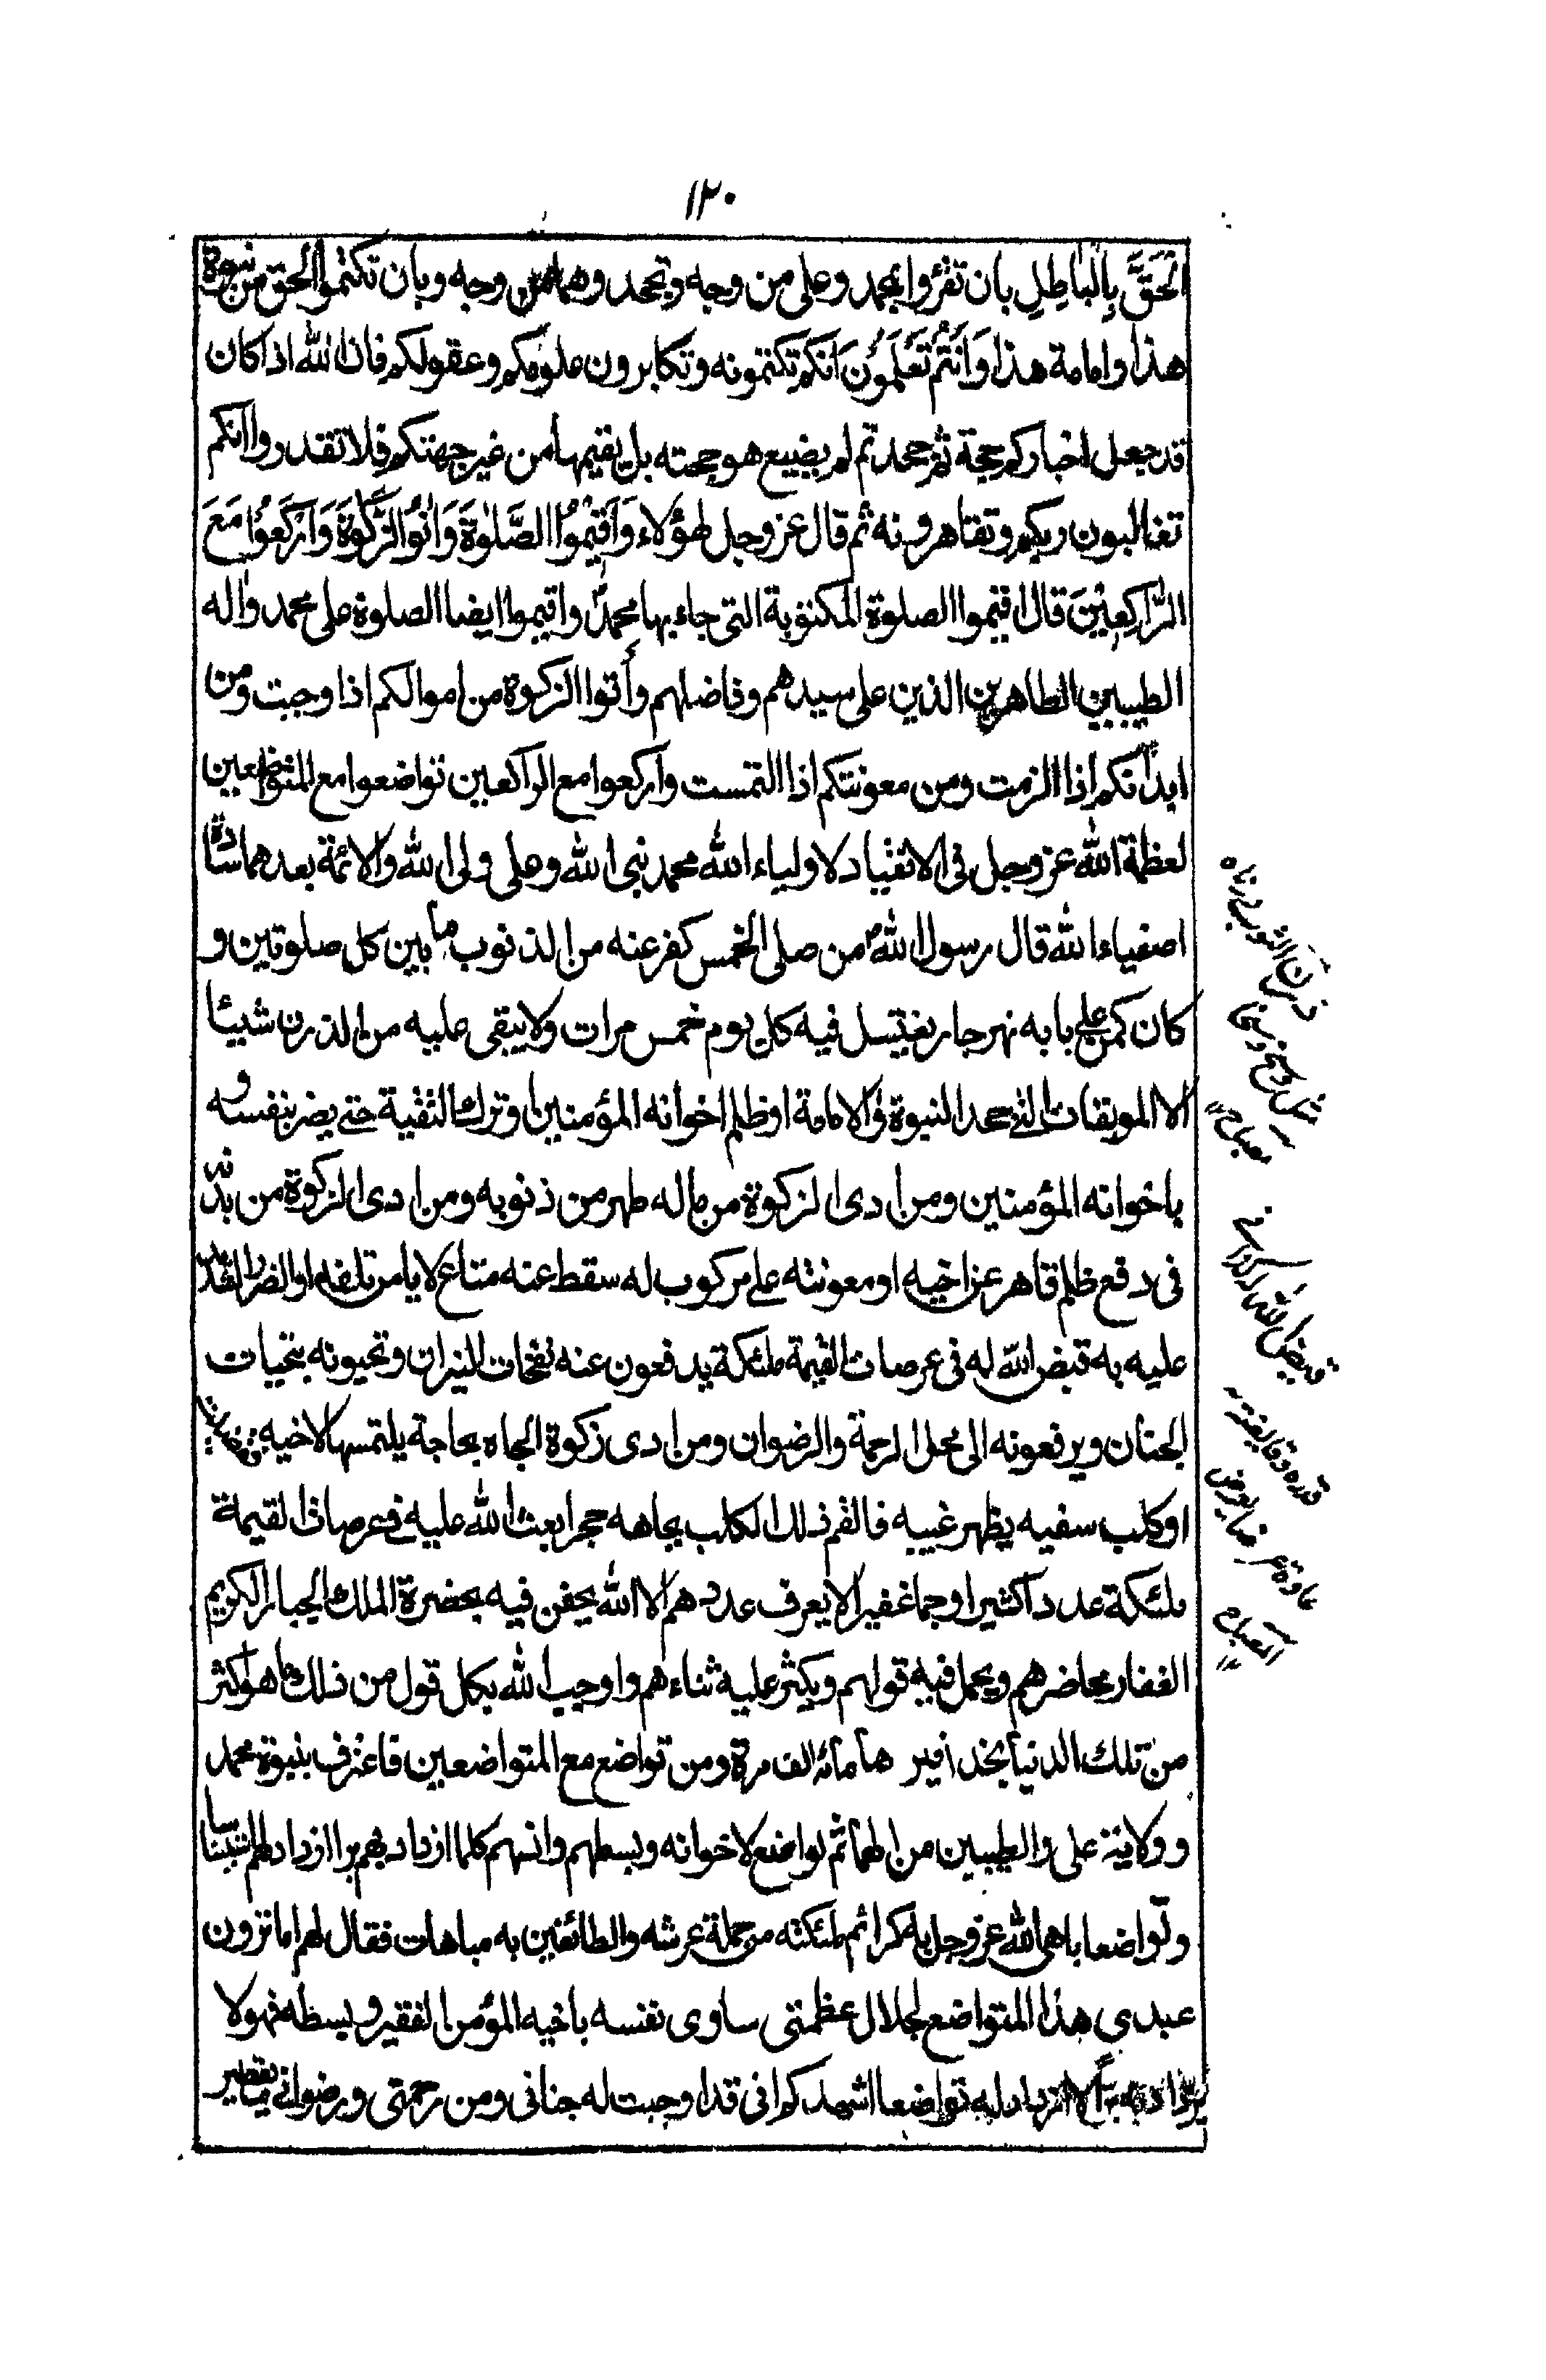 ١٢٠
الْحَقَّ بِالْبَاطِلِ بان تقرّوا بمحمد وعلى من وجه وتجحدوهما من وجه وبان تكتموا الحق من نبوة
هذا وامامة هذا وَاَنْتُمْ تَعْلَمُوْنَ انكم تكتمونه وتكابرون علومكم وعقولكم فان الله اذا كان
قد جعل اخباركم حجة ثم جحدتم لم يضيع هو حجته بل يقيمها من غير جهتكم فلا تقدروا انكم
تغالبون ربكم وتقاهرونه ثم قال عز وجل لهؤلاء وَاَقِيْمُوا الصَّلٰوةَ وَاٰتُوا الزَّكٰوةَ وَارْكَعُوْا مَعَ
الرَّاكِعِيْنَ قال اقيموا الصلوة المكتوبة التى جاء بها محمدؐ واقيموا ايضا الصلوة على محمد واله
الطيبين الطاهرين الذين على سيدهم وفاضلهم وأتوا الزكوة من اموالكم اذا وجبت ومن
ابدانكم اذا الزمت ومن معونتكم اذا التمست واركعوا مع الراكعين تواضعوا مع المتواضعين
لعظمة الله عز وجل فى الانقياد لاولياء الله محمد نبى الله وعلى ولى الله والائمة بعدهما سادة
اصفياء الله قال رسول اللهؐ من صلى الخمس كفر عنه من الذنوب ما بين كل صلوتين و
كان كمن على بابه نهر جار يغتسل فيه كل يوم خمس مرات ولا يبقى عليه من الدرن شيئا
الا الموبقات التى جحد النبوة والامامة او ظلم اخوانه المؤمنين او ترك التقية حتى يضر بنفسه و
باخوانه المؤمنين ومن ادى الزكوة من ماله طهر من ذنوبه ومن ادى الزكوة من بدنه
فى دفع ظلم قاهر عن اخيه او معونته على مركوب له سقط عنه متاع لا يامن تلفه او الضرر الشديد
عليه به قبض الله له فى عرصات القيمة ملئكة يدفعون عنه نفحات النيران وتحيونه بتحيات
الجنان ويرفعونه الى محل الرحمة والرضوان ومن ادى زكوة الجاه بحاجة يلتمسها لاخيه فقضيت
او كلب سفيه يظهر غيبه فالقم ذلك الكلب بجاهه حجرا بعث الله عليه فى عرصات القيمة
ملئكة عددا كثيرا وجما غفيرا لا يعرف عددهم الا الله يحفن فيه بحضرة الملك الجبار الكريم
الغفار محاضرهم ويجمل فيه قولهم ويكثر عليه ثناءهم واوجب الله بكل قول من ذلك ما هو اكثر
من تلك الدنيا بحذافيرها مائه الف مرة ومن تواضع مع المتواضعين فاعترف بنبوة محمد
وولاية على والطيبين من الهما ثم تواضع لاخوانه وبسطهم وانسهم كلما ازداد بهم برا ازداد لهم استيناسا
وتواضعا باهى الله عز وجل به كرائم ملئكته من حملة عرشه والطائفين به مباهات فقال لهم اما ترون
عبدى هذا المتواضع لجلال عظمتى ساوى نفسه باخيه المؤمن الفقير وبسطه فهو لا
يزداد به برا الا ازداد له تواضعا اشهدكم انى قد اوجبت له جنانى ومن رحمتى ورضوانى ما يقصر
درن الثوب درناه
مثل وسخ وسخا
مصباح